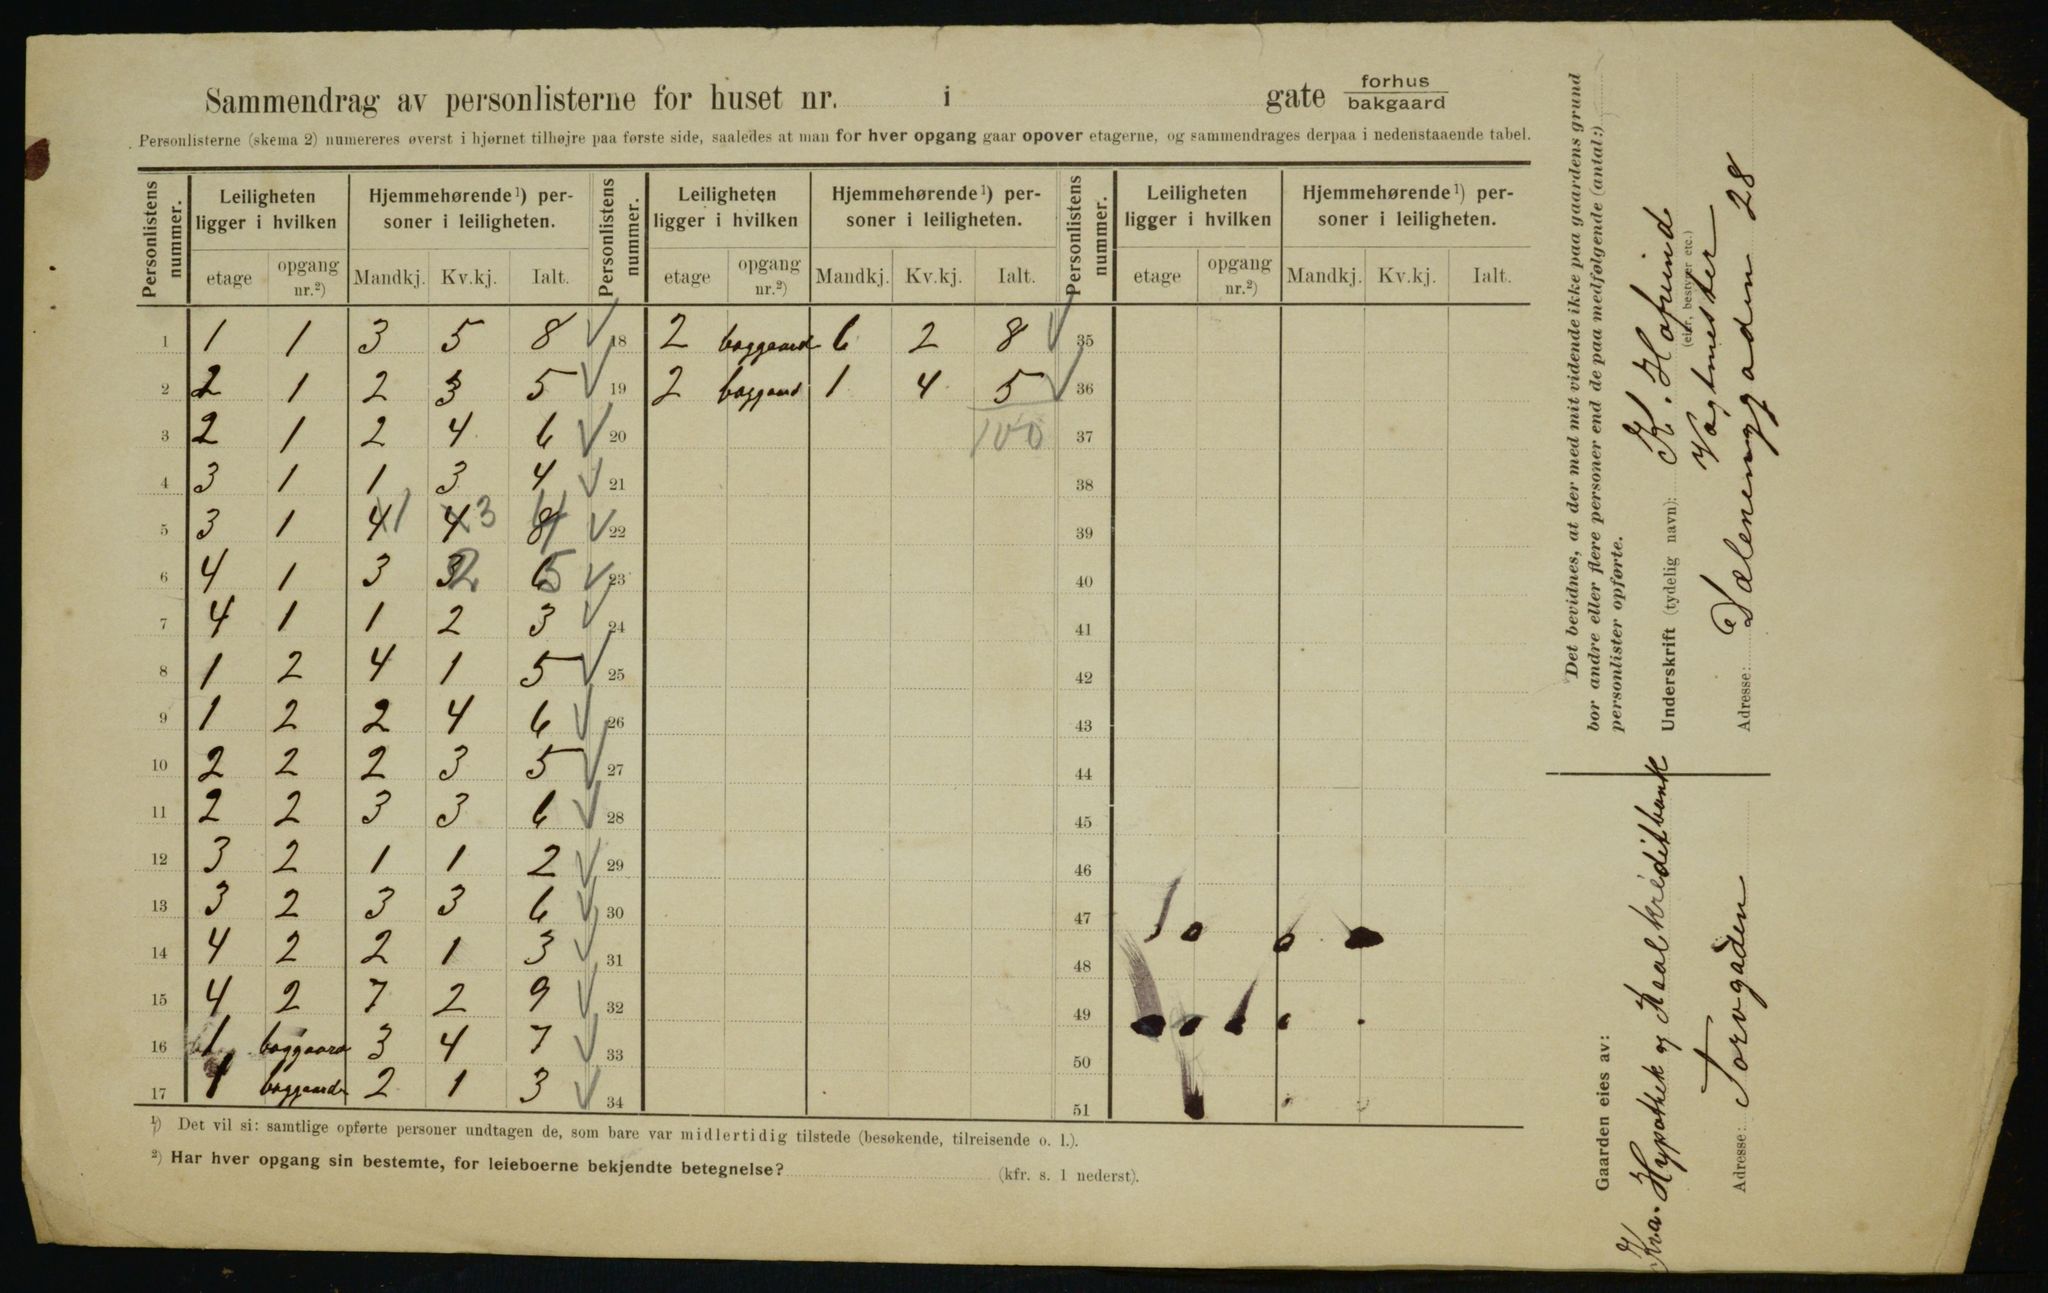 Sammendrag av personlisterne for huset nr. i gate forhus bakgaard
Personlisterne (skema 2) numereres øverst i hjørnet tilhøjre paa første side, saaledes at man for hver opgang gaar opover etagerne, og sammendrages derpaa i nedenstaaende tabel.
Personlistens nummer. Leiligheten ligger i hvilken Hjemmehørende¹) personer i leiligheten. Personlistens nummer. Leiligheten ligger i hvilken Hjemmehørende¹) personer i leiligheten. Personlistens nummer. Leiligheten ligger i hvilken Hjemmehørende¹) personer i leiligheten.
etage opgang nr.²) Mandkj. Kv.kj. Ialt. etage opgang nr.²) Mandkj. Kv.kj. Ialt. etage opgang nr.²) Mandkj. Kv.kj. Ialt.
1 1 1 3 5 8 18 2 baggaard 6 2 8 35
2 2 1 2 3 5 19 2 baggaard 1 4 5 36
3 2 1 2 4 6 20 100 37
4 3 1 1 3 4 21 38
5 3 1 4 1 4 3 8 4 22 39
6 4 1 3 3 2 6 5 23 40
7 4 1 1 2 3 24 41
8 1 2 4 1 5 25 42
9 1 2 2 4 6 26 43
10 2 2 2 3 5 27 44
11 2 2 3 3 6 28 45
12 3 2 1 1 2 29 46
13 3 2 3 3 6 30 47
14 4 2 2 1 3 31 48
15 4 2 7 2 9 32 49
16 1 baggaard 3 4 7 33 50
17 1 baggaard 2 1 3 34 51
¹) Det vil si: samtlige opførte personer undtagen de, som bare var midlertidig tilstede (besøkende, tilreisende o. l.).
²) Har hver opgang sin bestemte, for leieboerne bekjendte betegnelse? (kfr. s. 1 nederst).
Det bevidnes, at der med mit vidende ikke paa gaardens grund
bor andre eller flere personer end de paa medfølgende (antal:)
personlister opførte.
Underskrift (tydelig navn): K. Hofrind
(eier, bestyrer etc.)
Vagtmester
Adresse: Sælenenggaden 28
Gaarden eies av:
Kra. Hypothek og Realkreditbank
Adresse: Torvgaden